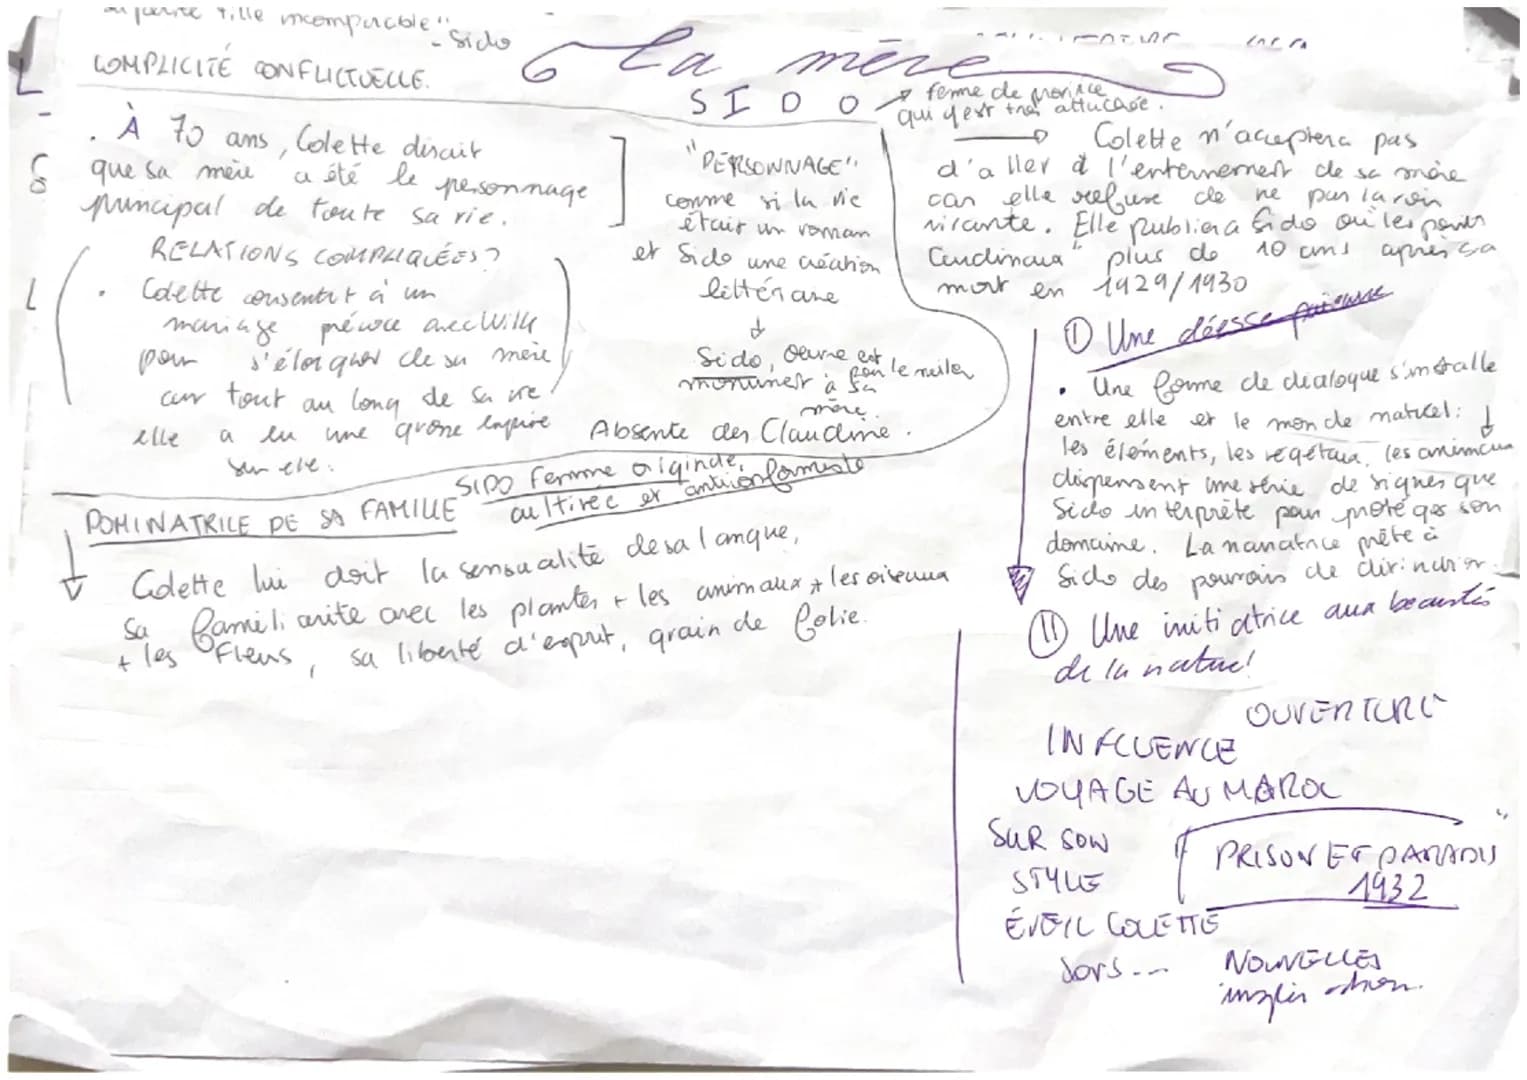 fille incomparable"
- Sido
COMPLICITÉ CONFLICTUELLE.
La mère
SIDO
femme de province
qui y est très attachée.
. À 70 ans, Colette disait
que sa mère a été le personnage
principal de toute sa vie.
RELATIONS COMPLIQUÉES?
. Colette consentit à un
mariage précoce avec Willy
pour s'éloigner de sa mère
car tout au long de sa vie
elle a eu une grosse empire
sur elle.
"PERSONNAGE"
comme si la vie
était un roman
et Sido une création
littéraire
Sido, Oeuvre est
monument à sa
mère.
Absente des Claudine.
Colette n'acceptera pas
d'aller à l'enterrement de sa mère
car elle refuse de ne pas la voir
vivante. Elle publiera Sido ou les points
Cardinaux" plus de 10 ans après sa
mort en 1929/1930
I Une déesse païenne
. Une forme de dialogue s'installe
entre elle et le monde naturel:
les éléments, les végétaux, les animaux
dispensent une série de signes que
Sido interprète pour protéger son
domaine. La narratrice prête à
Sido des pouvoirs de divination.
II Une initiatrice aux beautés
de la nature!
SIDO Femme originale,
cultivée et anticonformiste
DOMINATRICE DE SA FAMILLE
Colette lui doit la sensualité de sa langue,
sa familiarité avec les plantes + les animaux + les oiseaux
+ les Fleurs, sa liberté d'esprit, grain de folie.
OUVERTURE
INFLUENCE
VOYAGE AU MAROC
SUR SON
STYLE
PRISON ET PARADIS
1932
ÉVEIL COLETTE
sors...
NOUVELLES